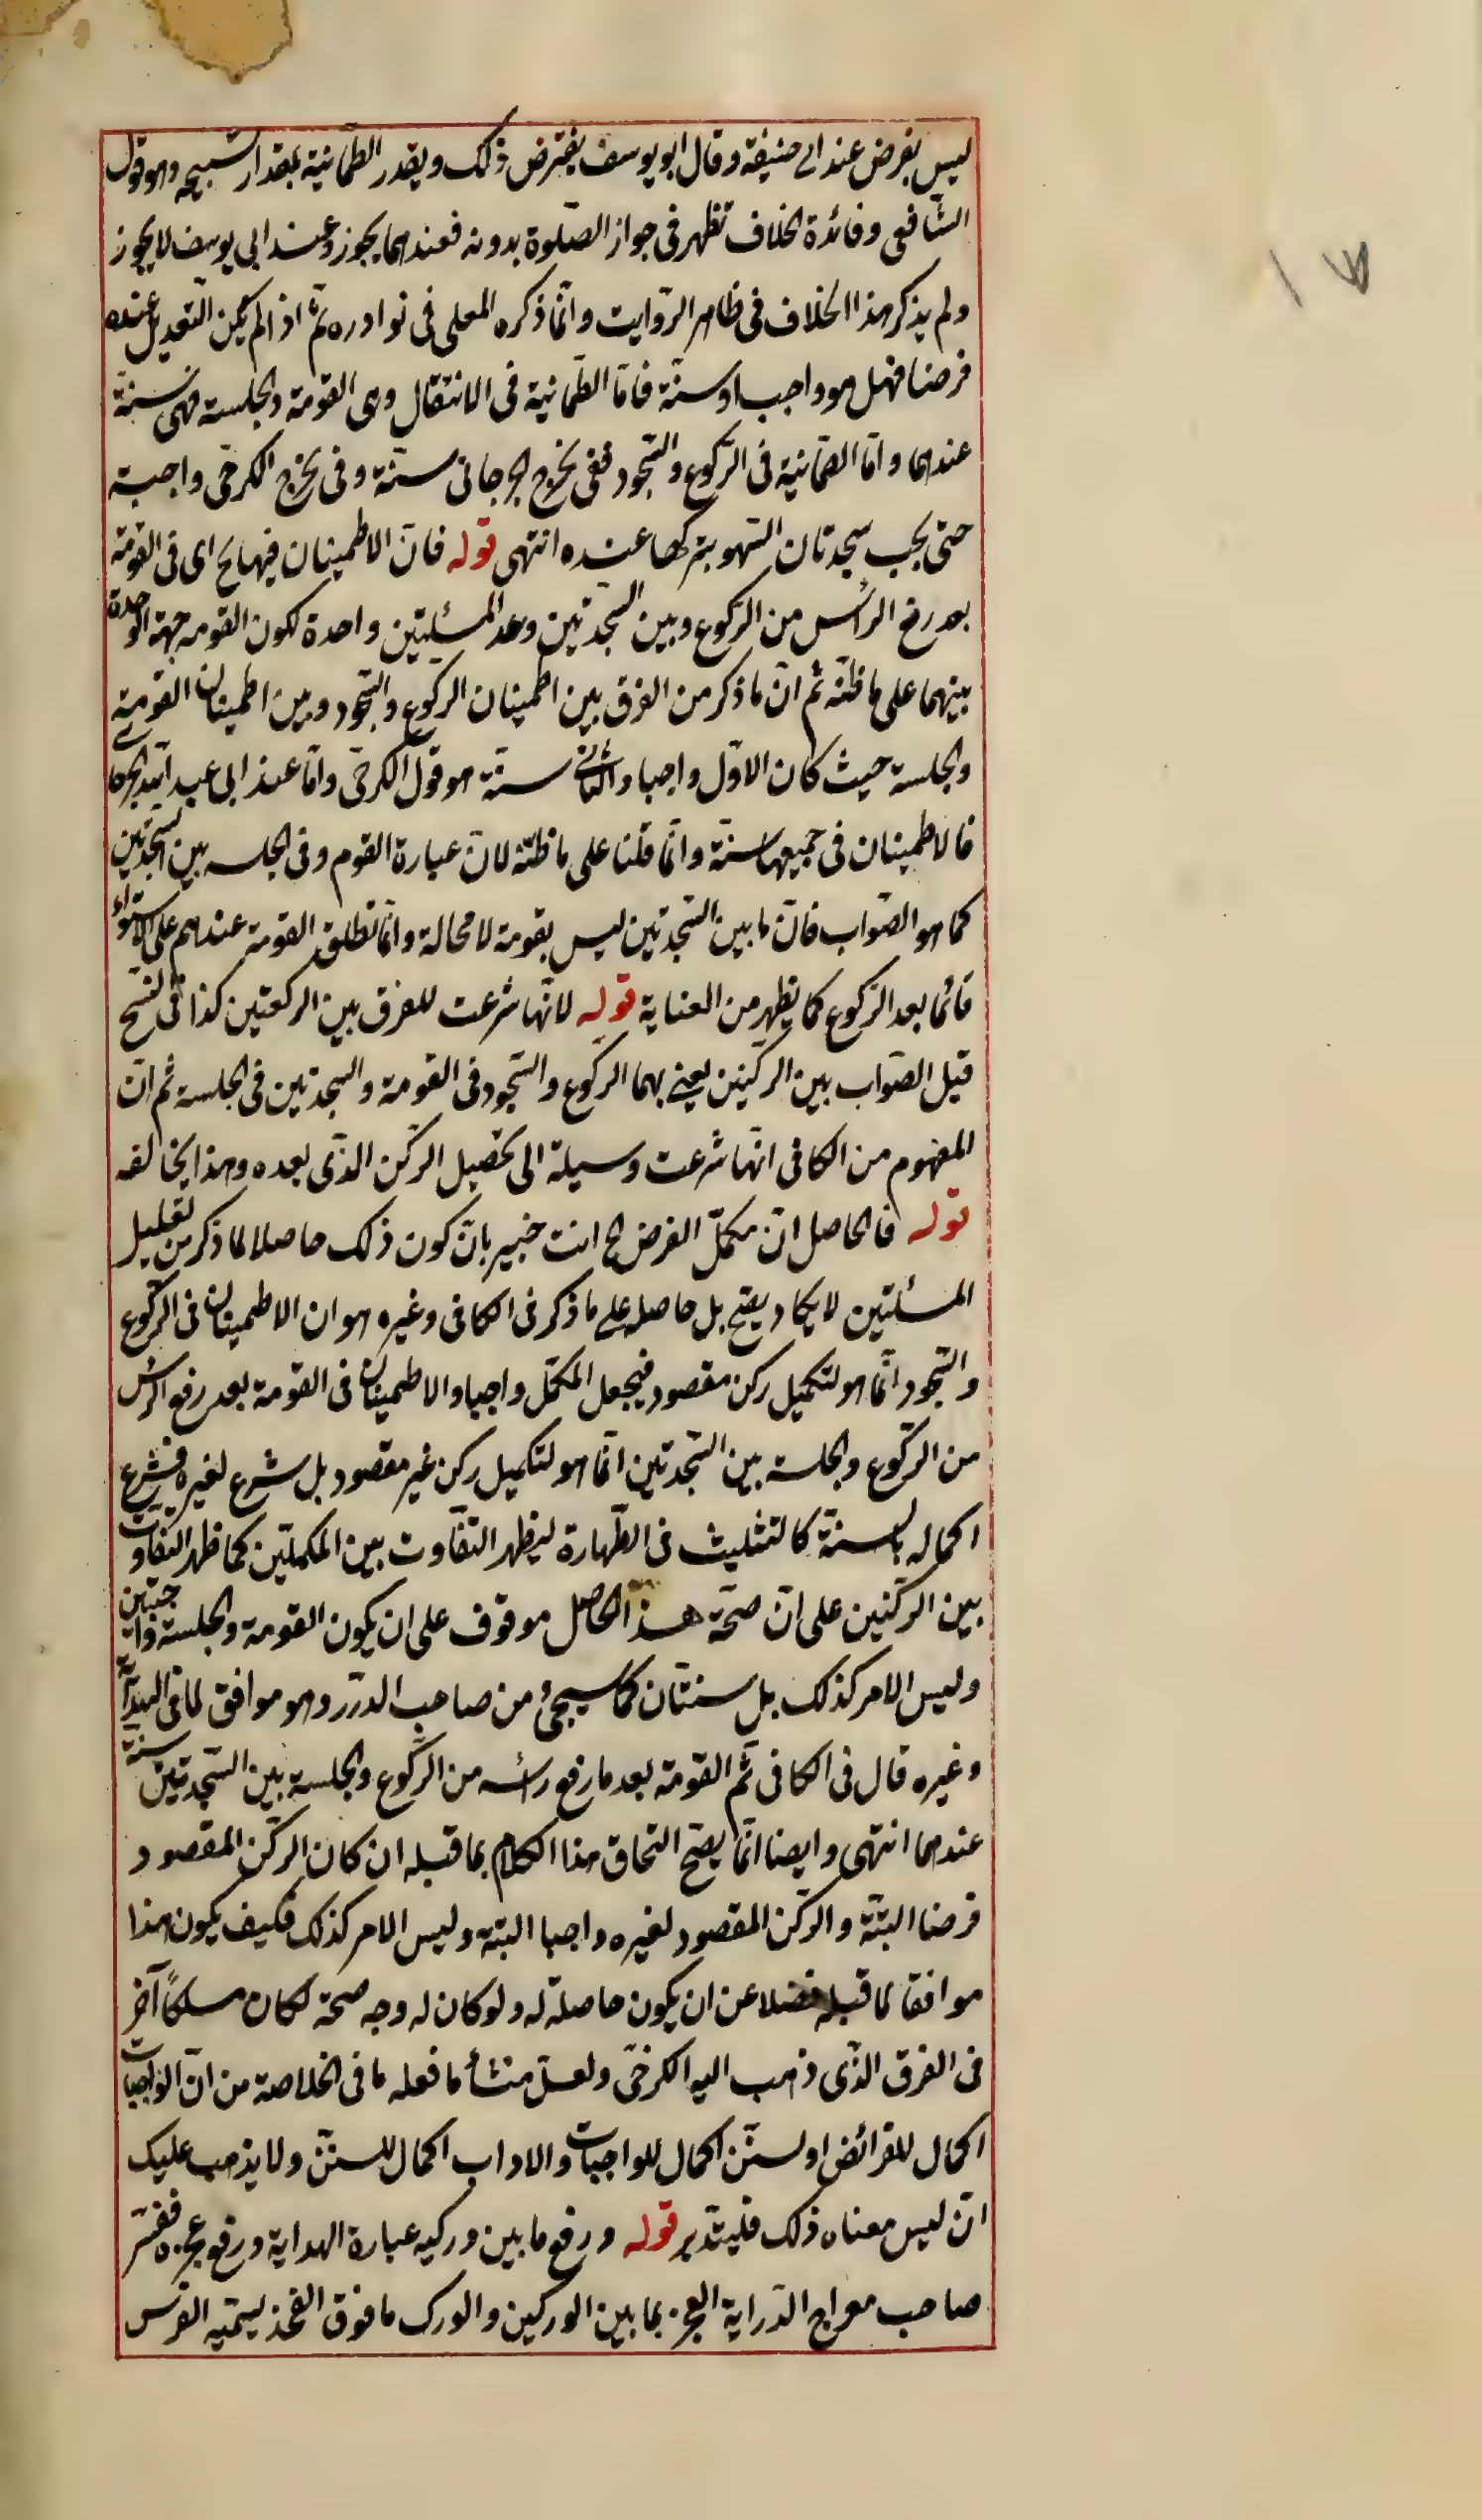 ليس بفرض عند ابى حنيفة وقال ابو يوسف يفترض ذلك ويقدر الطمانية بمقدار تسبيحه وهو قول
الشافعى وفائدة الخلاف تظهر فى جواز الصلوة بدونه فعندهما يجوز وعند ابى يوسف لا يجوز
ولم يذكر هذا الخلاف فى ظاهر الروايت وانما ذكره المعلى فى نوادره ثم اذا لم يكن التعديل عنده
فرضا فهل هو واجب او سنة فاما الطمانية فى الانتقال وهى القومة والجلسة فهى سنة
عندهما واما الطمانية فى الركوع والسجود ففى تخريج الجرجانى سنة وفى تخريج الكرخى واجبة
حتى يجب سجدتان السهو بتركها عنده انتهى قوله فان الاطمينان فيها الخ اى فى القومة
بعد رفع الراس من الركوع وبين السجدتين وعد المسئلتين واحدة لكون القومه جهة الوحدة
بينهما على ما ظنه ثم ان ما ذكر من الفرق بين اطمينان الركوع والسجود وبين اطمينان القومة
والجلسة حيث كان الاول واجبا والثانى سنة هو قول الكرخى واما عند ابى عبد الله الجرجانى
فالاطمينان فى جميعها سنة وانما قلنا على ما ظنه لان عبارة القوم وفى الجلسه بين السجدتين
كما هو الصواب فان ما بين السجدتين ليس بقومة لا محالة وانما تطلق القومة عندهم على الاستواء
قائما بعد الركوع كما يظهر من العناية قوله لانها شرعت للفرق بين الركعتين كذا فى النسخ
قيل الصواب بين الركنين يعنى بهما الركوع والسجود فى القومة والسجدتين فى الجلسة ثم ان
المفهوم من الكافى انها شرعت وسيلة الى تحصيل الركن الذى بعده وهذا يخالفه
قوله فالحاصل ان مكمل الفرض الخ انت خبير بان كون ذلك حاصلا لما ذكر من تعليل
المسئلتين لا يكاد يصح بل حاصله على ما ذكر فى الكافى وغيره هو ان الاطمينان فى الركوع
والسجود انما هو لتكميل ركن مقصود فيجعل المكمل واجبا والاطمينان فى القومة بعد رفع الراس
من الركوع والجلسة بين السجدتين انما هو لتكميل ركن غير مقصود بل شرع لغيره فشرع
اكماله بالسنة كالتثليث فى الطهارة ليظهر التفاوت بين المكملين كما ظهر التفاوت
بين الركنين على ان صحة هذا الحاصل موقوف على ان يكون القومة والجلسة واجبتين
وليس الامر كذلك بل سنتان كما سيجئ من صاحب الدرر وهو موافق لما فى الهداية
وغيره قال فى الكافى ثم القومة بعد ما رفع راسه من الركوع والجلسة بين السجدتين سنة
عندهما انتهى وايضا انما يصح التحاق هذا الكلام بما قبله ان كان الركن المقصود
فرضا البتة والركن المقصود لغيره واجبا البتة وليس الامر كذلك فكيف يكون هذا
موافقا لما قبله فضلا عن ان يكون حاصلة له ولو كان له وجه صحة لكان مسلكا آخر
فى الفرق الذى ذهب اليه الكرخى ولعل منشأ ما فعله ما فى الخلاصة من ان الواجبات
اكمال للفرائض والسنن اكمال للواجبات والاداب اكمال للسنن ولا يذهب عليك
ان ليس معناه ذلك فليتدبر قوله ورفع ما بين وركيه عبارة الهداية ورفع عجزه ففسر
صاحب معراج الدراية العجز بما بين الوركين والورك ما فوق الفخذ يسميه الفرس